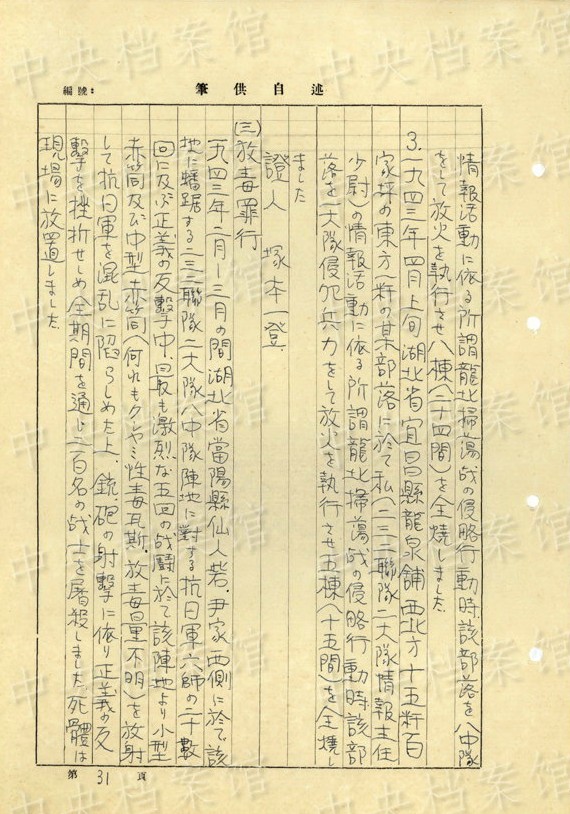 編號:
筆供自述
情報活動に依る所謂龍北掃蕩战の侵略行動時該部落を八中隊
をして放火を執行させ八棟(二十四間)を全燒しました
3.一九四三年四月上旬湖北省宜昌縣龍泉舖西北方十五粁百
家坪の東方一粁の某部落に於て私(二三二聯隊二大隊情報主任
少尉)の情報活動に依る所謂龍北掃蕩战の侵略行動時該部
落を二大隊侵犯兵力をして放火を執行させ五棟(十五間)を全燒し
ました
證人 塚本一登.
(三)放毒罪行
一九四三年二月―三月の間湖北省當陽縣仙人岩.尹家西側に於て該
地に蟠踞する二三二聯隊二大隊八中隊陣地に対する抗日軍六師の二十數
回に及ぶ正義の反擊中、最も激烈な五回の战闘に於て該陣地より小型
赤筒及び中型赤筒(何れもクシャミ性毒瓦斯.放毒量不明)を放射
して抗日軍を混乱に陥らしめた上、銃砲の射擊に依り正義の反
擊を挫折せしめ全期間を通じ二百名の战士を屠殺しました死體は
現場に放置しました
第31頁
中央档案馆